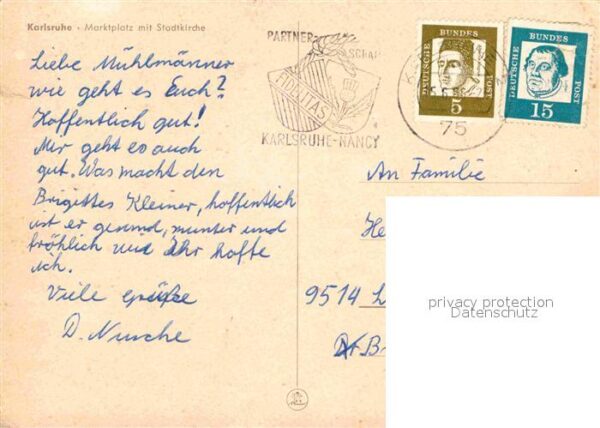 Karlsruhe · Marktplatz mit Stadtkirche
Liebe Mühlmänner
wie geht es Euch?
Hoffentlich gut!
Mir geht es auch
gut. Was macht den
Brigittes Kleiner, hoffentlich
ist er gesund, munter und
fröhlich wie Ihr hoffe
ich.
Viele Grüße
D.
PARTNER
SCHAF
FIDELITAS
KARLSRUHE-NANCY
DEUTSCHE BUNDES POST
5
DEUTSCHE BUNDES POST
15
75
An Familie
He
9514
privacy protection
Datenschutz